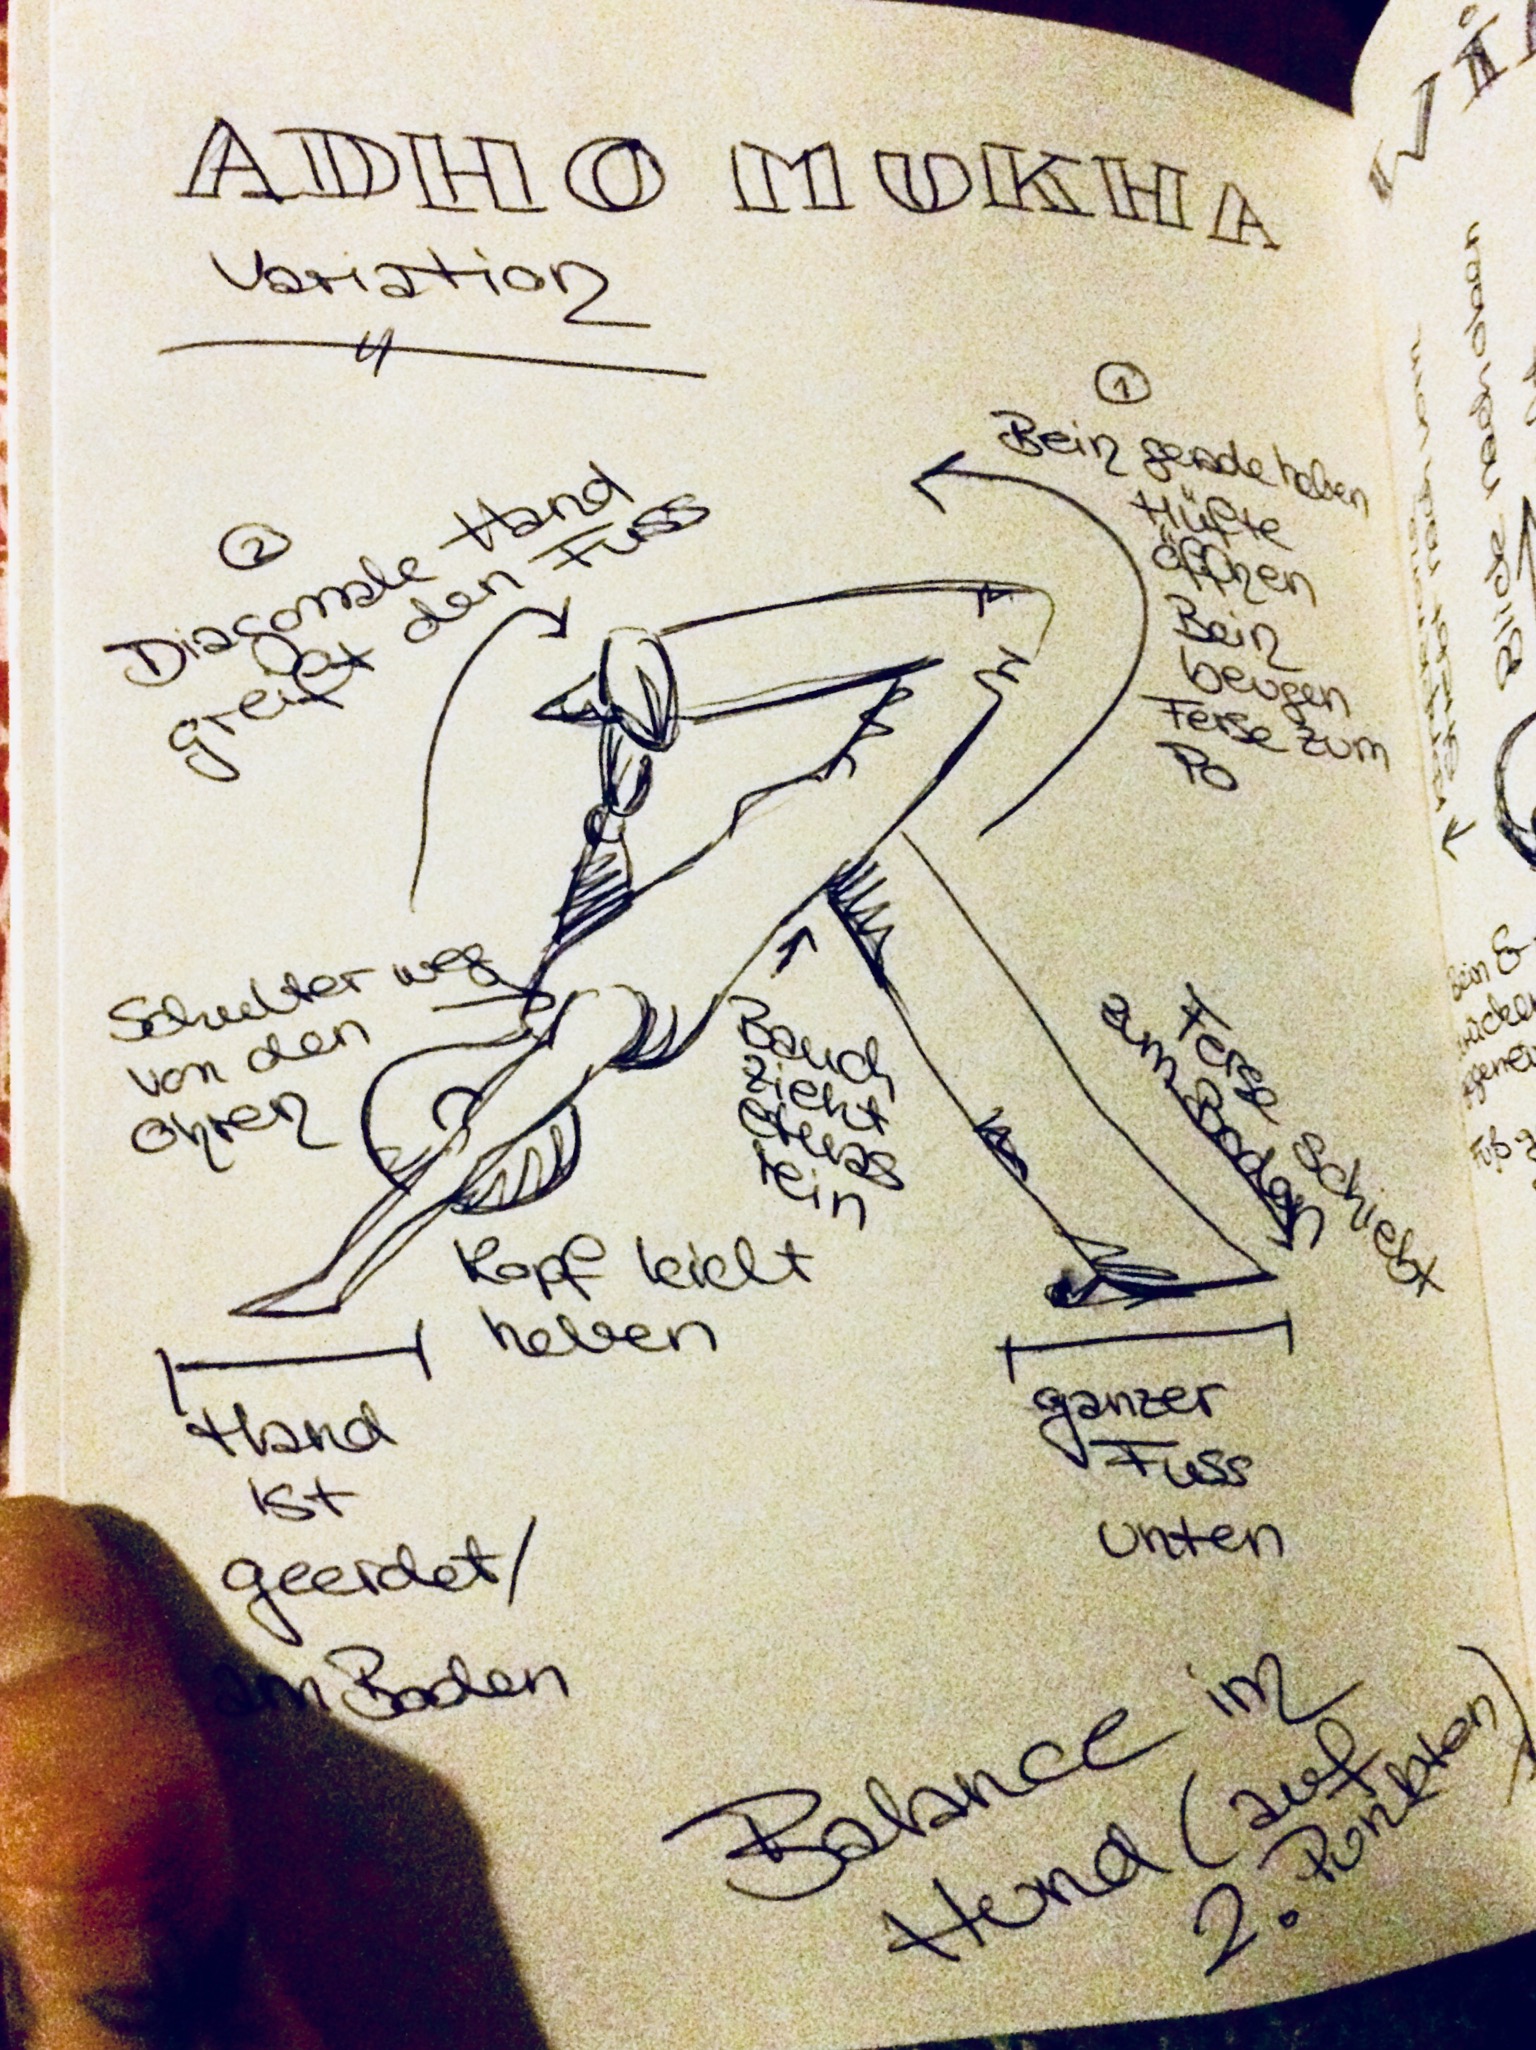 ADHO MUKHA
Variation
①
Bein gerade heben
Hüfte
öffnen
Bein
beugen
Ferse zum
Po
②
Diagonale Hand
greift den Fuss
Schulter weg
von den
Ohren
Bauch
zieht
etwas
rein
Ferse schiebt
zum Boden
Kopf leicht
heben
Hand
ist
geerdet/
am Boden
ganzer
Fuss
unten
Balance im
Hund (auf
2. Punkten)